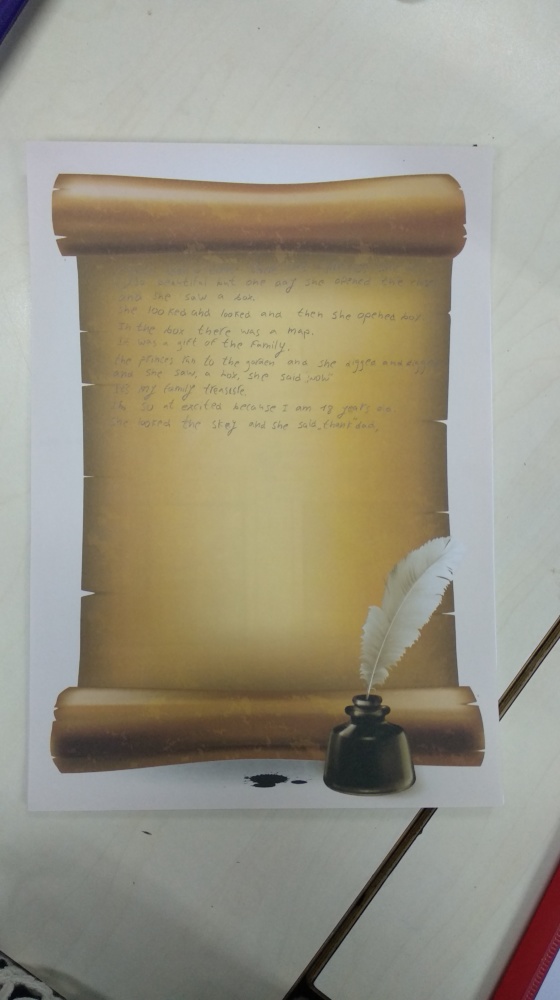 beautiful but one day she opened the
and she saw a box.
She looked and looked and then she opened box.
In the box there was a map.
It was a gift of the Family.
the princes ran to the and she digged and digged
and she saw a box, she said "wow"
my family treasure.
so excited because I am 18 years
She looked the sky and she said, thank